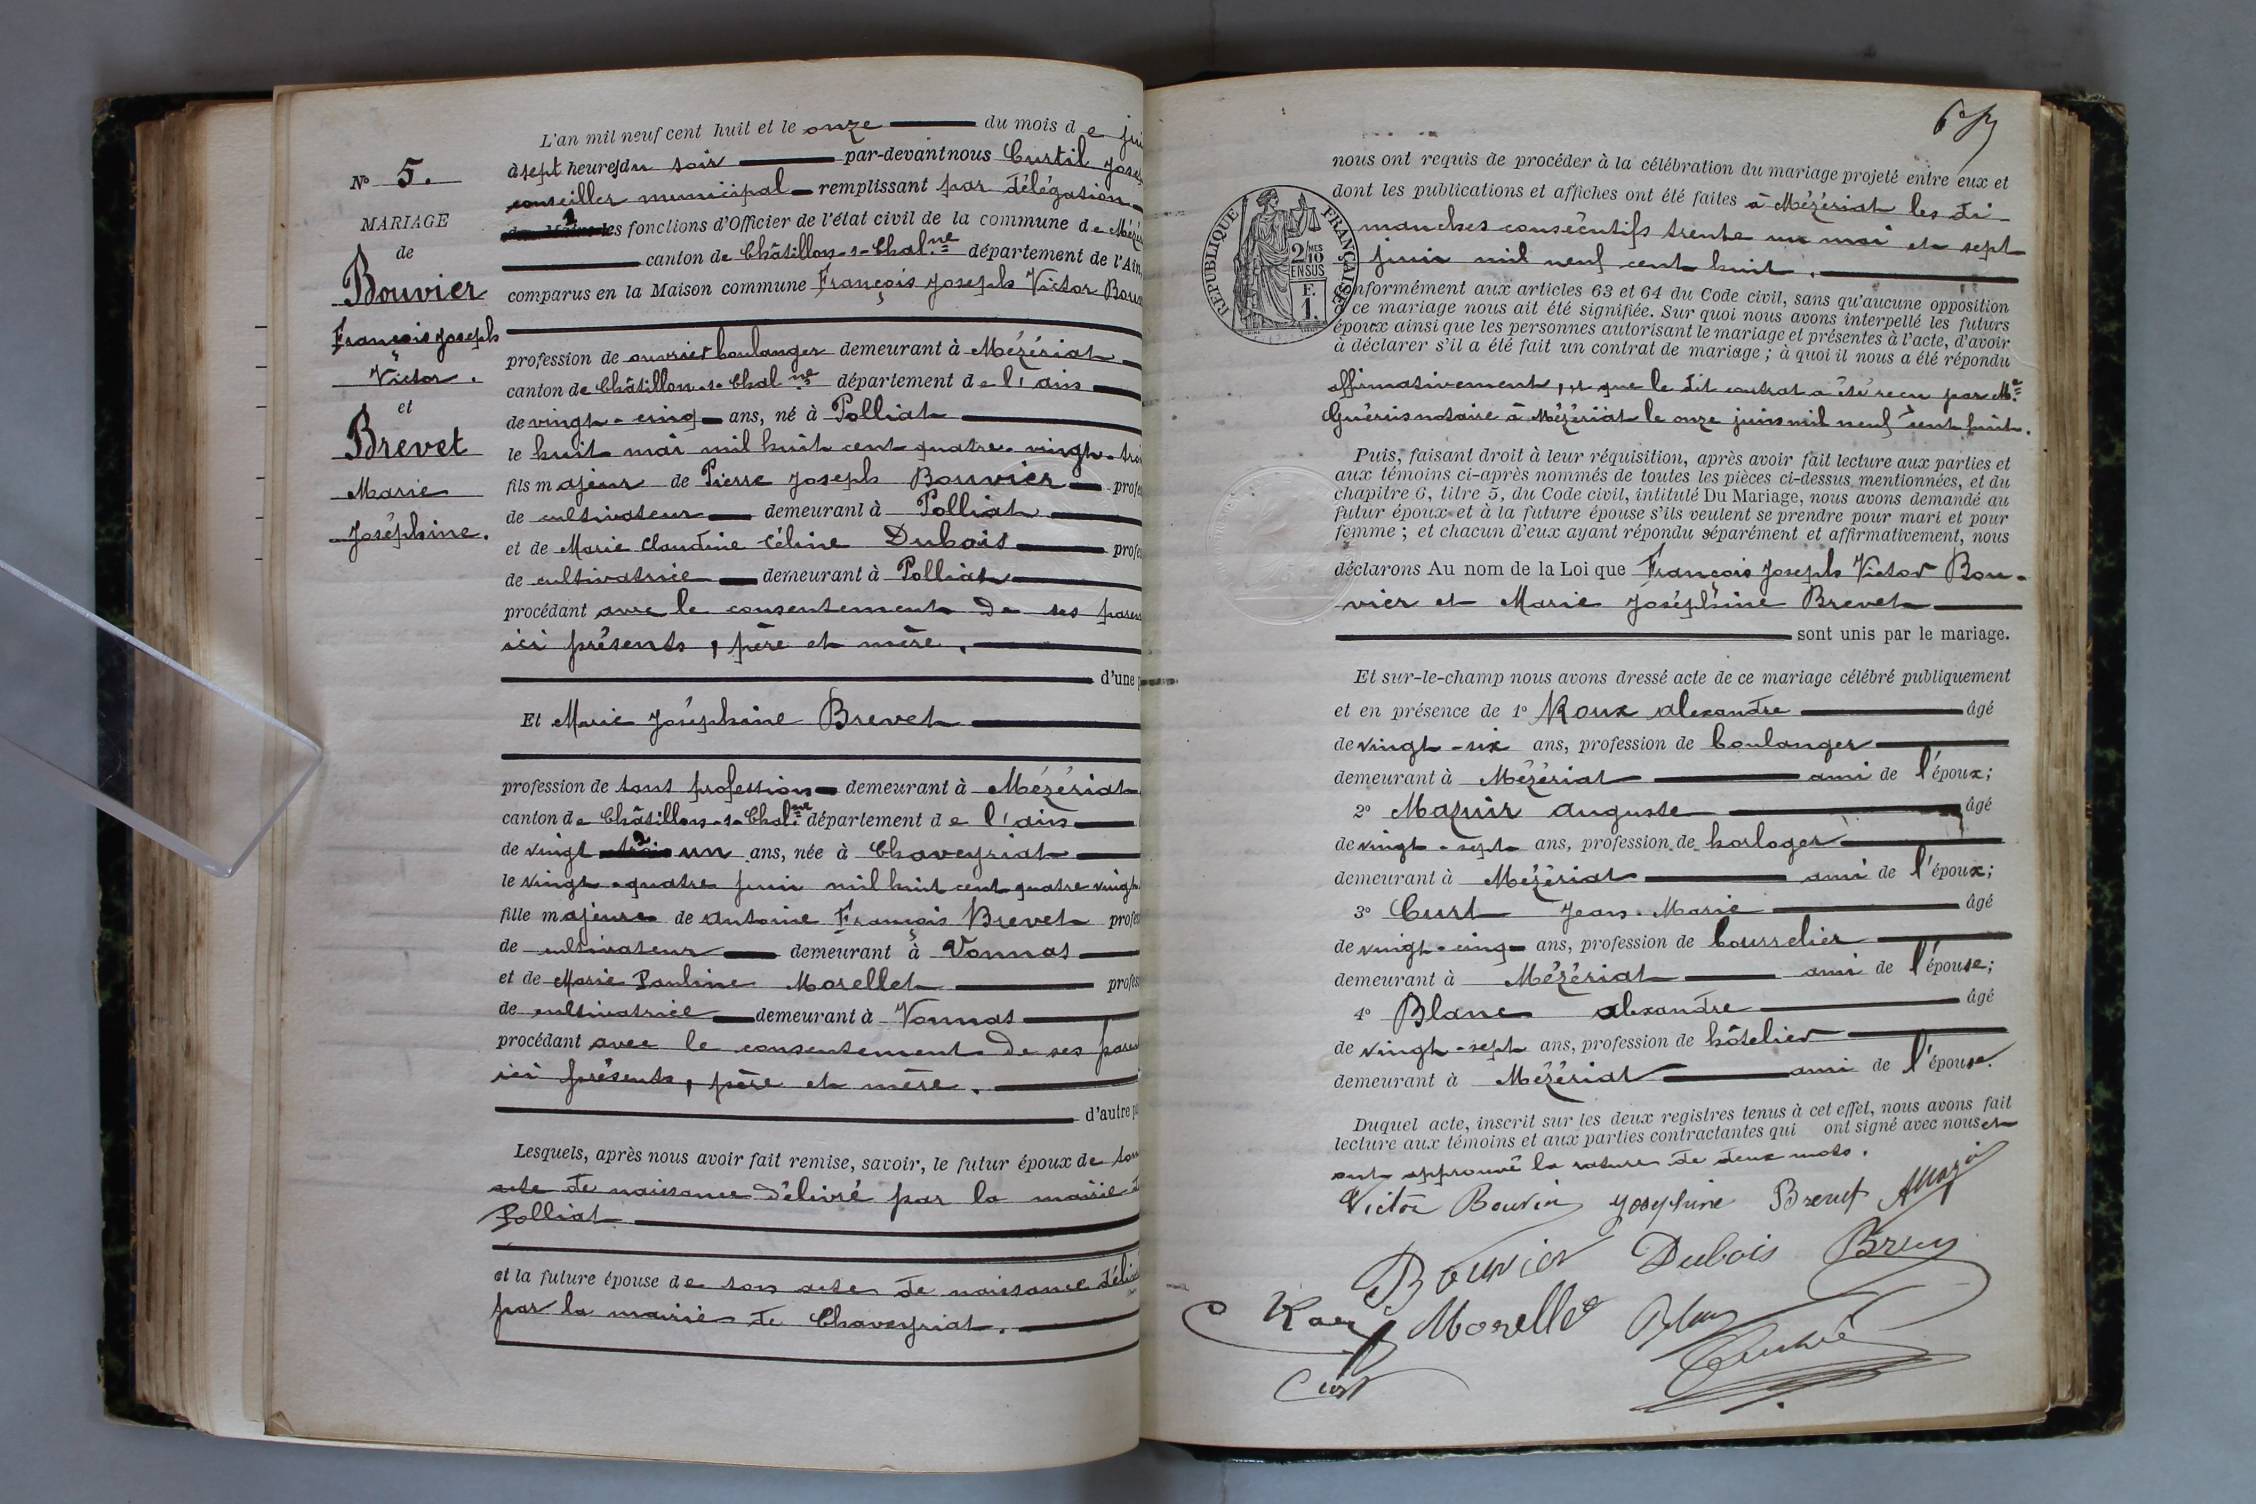 L'an mil neuf cent huit et le onze du mois de jui
à sept heures du soir par-devant nous Curtil Josep
conseiller municipal remplissant par délégation
les fonctions d'Officier de l'état civil de la commune de Mézé
canton de Châtillon-s-Chal.ne département de l'Ain
comparus en la Maison commune François Joseph Victor Bou
profession de ouvrier boulanger demeurant à Mézériat
canton de Châtillon-s-Chal.ne département de l'ain
de vingt-cinq ans, né à Polliat
le huit mai mil huit cent quatre-vingt-troi
fils majeur de Pierre Joseph Bouvier profe
de cultivateur demeurant à Polliat
et de Marie Claudine Céline Dubois profe
de cultivatrice demeurant à Polliat
procédant avec le consentement de ses paren
ici présents, père et mère.
d'une p
Et Marie Joséphine Brevet
profession de sans profession demeurant à Mézériat
canton de Châtillon-s-Chal.ne département de l'ain
de vingt un ans, née à Chaveyriat
le vingt-quatre juin mil huit cent quatre vingt
fille majeure de Antoine François Brevet profes
de cultivateur demeurant à Vonnas
et de Marie Pauline Morellet profes
de cultivatrice demeurant à Vonnas
procédant avec le consentement de ses paren
ici présents, père et mère.
d'autre pa
Lesquels, après nous avoir fait remise, savoir, le futur époux de son
acte de naissance délivré par la mairie d
Polliat
et la future épouse de son acte de naissance déliv
par la mairie de Chaveyriat.
N° 5.
MARIAGE
de
Bouvier
François Joseph
Victor.
et
Brevet
Marie
Joséphine.
nous ont requis de procéder à la célébration du mariage projeté entre eux et
dont les publications et affiches ont été faites à Mézériat les di-
manches consécutifs trente un mai et sept
juin mil neuf cent huit.
nformément aux articles 63 et 64 du Code civil, sans qu'aucune opposition
à ce mariage nous ait été signifiée. Sur quoi nous avons interpellé les futurs
époux ainsi que les personnes autorisant le mariage et présentes à l'acte, d'avoir
à déclarer s'il a été fait un contrat de mariage ; à quoi il nous a été répondu
affirmativement, et que le dit contrat a été reçu par Me
Guérin notaire à Mézériat le onze juin mil neuf cent huit.
Puis, faisant droit à leur réquisition, après avoir fait lecture aux parties et
aux témoins ci-après nommés de toutes les pièces ci-dessus mentionnées, et du
chapitre 6, titre 5, du Code civil, intitulé Du Mariage, nous avons demandé au
futur époux et à la future épouse s'ils veulent se prendre pour mari et pour
femme ; et chacun d'eux ayant répondu séparément et affirmativement, nous
déclarons Au nom de la Loi que François Joseph Victor Bou-
vier et Marie Joséphine Brevet
sont unis par le mariage.
Et sur-le-champ nous avons dressé acte de ce mariage célébré publiquement
et en présence de 1° Roux alexandre âgé
de vingt-six ans, profession de boulanger
demeurant à Mézériat ami de l'époux;
2° Mazuir auguste âgé
de vingt-sept ans, profession de horloger
demeurant à Mézériat ami de l'époux;
3° Curt Jean-Marie âgé
de vingt-cinq ans, profession de bourrelier
demeurant à Mézériat ami de l'épouse;
4° Blanc alexandre âgé
de vingt-sept ans, profession de hôtelier
demeurant à Mézériat ami de l'épouse.
Duquel acte, inscrit sur les deux registres tenus à cet effet, nous avons fait
lecture aux témoins et aux parties contractantes qui ont signé avec nous et
ont approuvé la rature de deux mots.
Victor Bouvier Josephine Brevet
Bouvier Dubois
Morellet
Curt
RÉPUBLIQUE FRANÇAISE
2/10
EN SUS
F.
1.